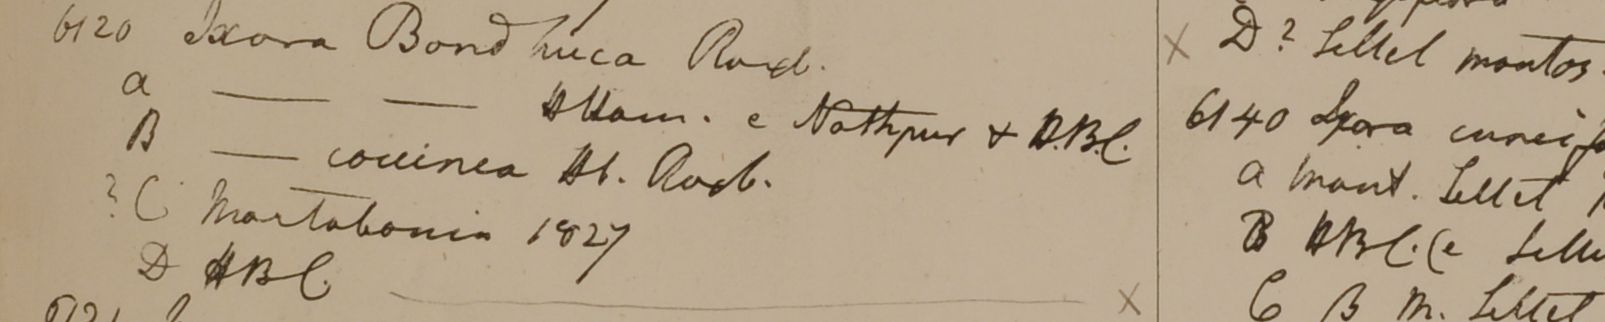 6120 Ixora Bandhuca Roxb.
a —— —— HHam. e Nathpur & H.B.C.
B —— coccinea Hb. Roxb.
? C Martabania 1827
D HBC.
X
D? Sillet montos.
6140 Ixora cuneif
a mont. Sillet
B HBC. (e Sille
C B M. Sillet
X